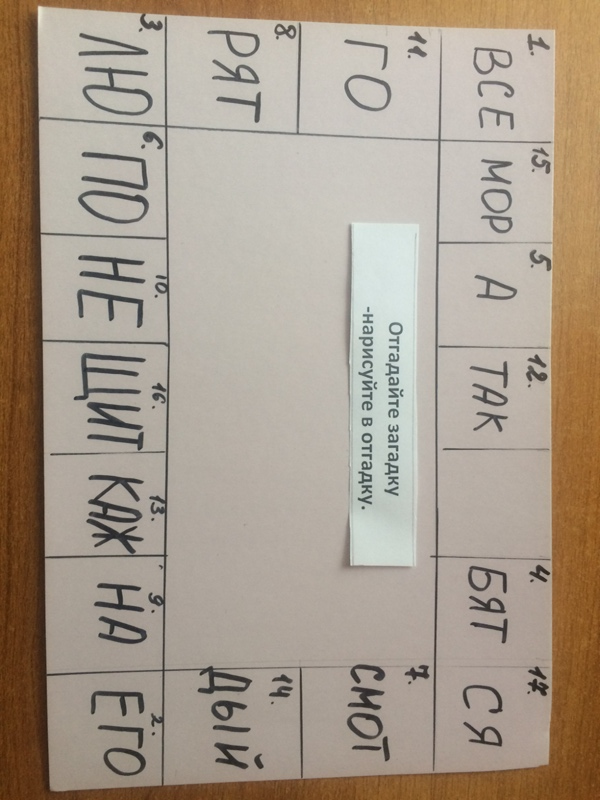 1. ВСЕ 15. МОР 5. А 12. ТАК 4. БЯТ 17. СЯ
11. ГО 7. СМОТ
Отгадайте загадку
-нарисуйте в отгадку.
8. РЯТ 14. ДЫЙ
3. ЛЮ 6. ПО 10. НЕ 16. ЩИТ 13. КАЖ 9. НА 2. ЕГО